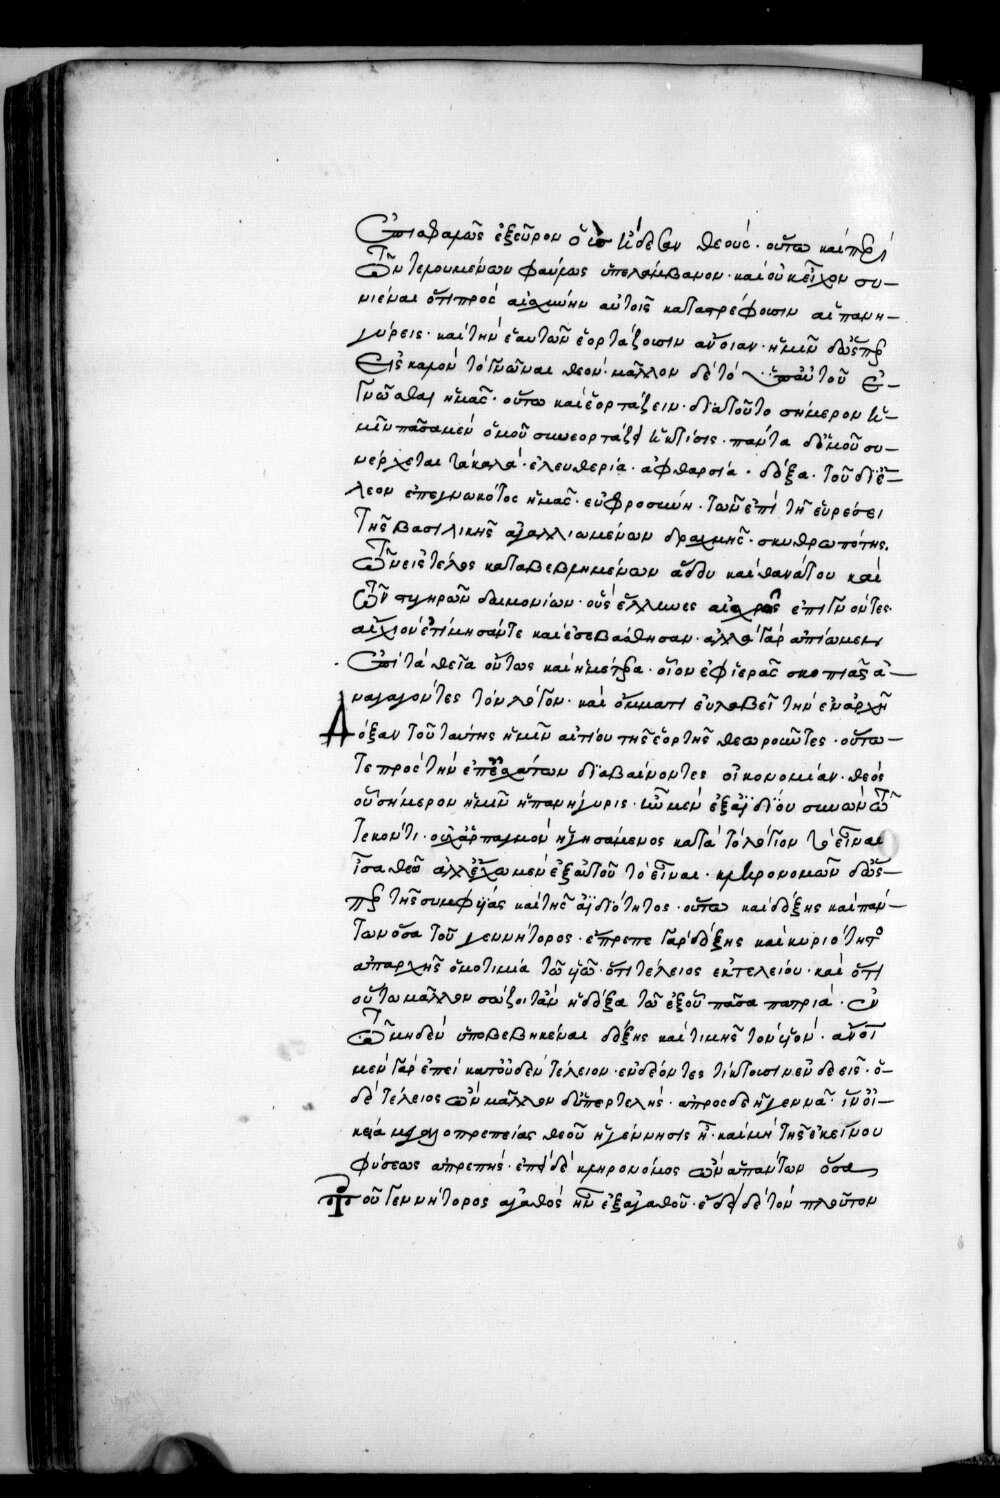 ἐπισφαλῶς ἐξεῦρον οἷς ᾔδεσαν θεούς· οὕτω καὶ περὶ
τῶν τελουμένων φαύλως ὑπελάμβανον· καὶ οὐκ εἶχον συ-
νιέναι ὅτι πρὸς αἰσχύνην αὐτοῖς καταστρέφουσιν αἱ πανη-
γύρεις· καὶ τὴν ἑαυτῶν ἑορτάζουσιν ἄνοιαν· ἡμῖν δ' ὥσπερ
εἰς καλὸν τὸ γνῶναι θεὸν· μᾶλλον δὲ τὸ ὑπ' αὐτοῦ ἐ-
γνῶσθαι ἡμᾶς· οὕτω καὶ ἑορτάζειν· διὰ τοῦτο σήμερον ἡ-
μῖν πᾶσα μὲν ὁμοῦ συνεορτάζει ἡ κτίσις· πάντα δ' ὁμοῦ συ-
νέρχεται τὰ καλά· ἐλευθερία· ἀφθαρσία· δόξα· τοῦ δι' ἔ-
λεον ἐπεγνωκότος ἡμᾶς· εὐφροσύνη· τῶν ἐπὶ τῇ εὑρέσει
τῆς βασιλικῆς ἀγαλλιωμένων δραχμῆς· σκυθρωπότης
τῶν εἰς τέλος καταβεβλημένων ᾅδου καὶ θανάτου καὶ
τῶν πονηρῶν δαιμονίων· οὓς ἕλληνες αἰσχρῶς ἐπιγνόντες·
αἴσχιον ἐτίμησάν τε καὶ ἐσεβάσθησαν· ἀλλὰ γὰρ ἀπίωμεν
ἐπὶ τὰ θεῖα οὕτως καὶ ἡμέτερα· οἷον ἐφ' ἱερᾶς σκοπιᾶς ἀ-
ναγαγόντες τὸν λόγον· καὶ ὄμματι εὐλαβεῖ τὴν ἐν ἀρχῇ
δόξαν τοῦ ταύτης ἡμῖν αἰτίου τῆς ἑορτῆς θεωροῦντες· οὕτω
τε πρὸς τὴν ἐπ' ἐσχάτων διαβαίνοντες οἰκονομίαν· θεὸς
οὗ σήμερον ἡμῖν ἡ πανήγυρις· ἦν μὲν ἐξ ἀϊδίου συνὼν τῷ
τεκόντι· οὐχ ἁρπαγμὸν ἡγησάμενος κατὰ τὸ λόγιον τὸ εἶναι
ἶσα θεῷ ἀλλ' ἔχων μὲν ἐξ αὐτοῦ τὸ εἶναι· κληρονομῶν δ' ὥσ-
περ τῆς συμφυΐας καὶ τῆς ἀϊδιότητος· οὕτω καὶ δόξης καὶ πάν-
των ὅσα τοῦ γεννήτορος· ἔπρεπε γὰρ δόξης καὶ κυριότητος
ἀπαρχῆς ὁμοτιμία τῷ υἱῷ· ὅτι τέλειος ἐκ τελείου· καὶ ὅτι
οὕτω μᾶλλον σώζοιτ' ἂν ἡ δόξα τῷ ἐξ οὗ πᾶσα πατριά· ἐν
τῷ μηδὲν ὑποβεβηκέναι δόξης καὶ τιμῆς τὸν υἱόν· ἄν̅ο̅ι̅
μὲν γὰρ ἐπεὶ κατ' οὐδὲν τέλειον· ἐνδέοντες τίκτουσιν ἐνδεεῖς· ὁ
δὲ τέλειος ὢν μᾶλλον δ' ὑπερτελὴς· ἀπροσδεῆ γεννᾷ· ἵν' οἰ-
κεία μεγαλοπρεπείας θεοῦ ἡ γέννησις ᾖ· καὶ μὴ τῆς ἐκείνου
φύσεως ἀπρεπής· ἐπεὶ δὲ κληρονόμος ὢν ἁπάντων ὅσα
τοῦ γεννήτορος ἀγαθὸς ἦν ἐξ ἀγαθοῦ· ἔδει δὲ τὸν πλοῦτον